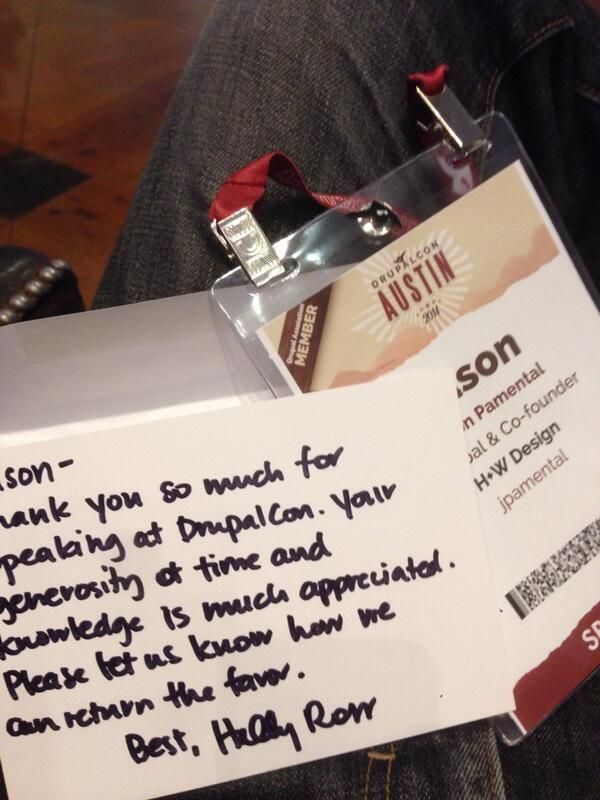 DRUPALCON
AUSTIN
2014
Drupal Association
MEMBER
son
n Pamental
pal & Co-founder
H+W Design
jpamental
SP
son-
hank you so much for
peaking at DrupalCon. Your
generosity of time and
knowledge is much appreciated.
Please let us know how we
can return the favor.
Best, Holly Ross